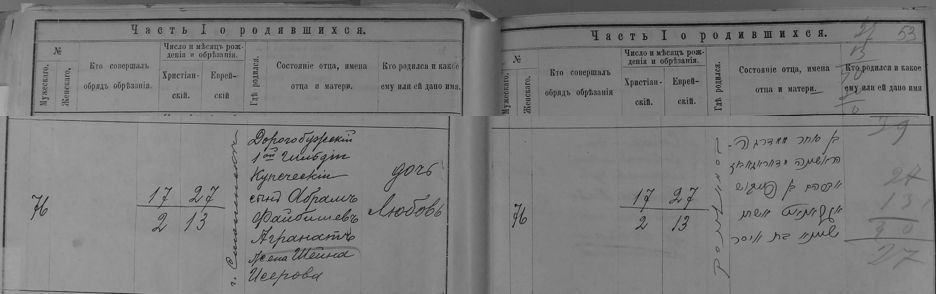 Часть I о родившихся.
№
Мужескаго.
Женскаго.
Кто совершалъ
обрядъ обрѣзанія.
Число и мѣсяцъ рож-
денія и обрѣзанія.
Христіан-
скій.
Еврей-
скій.
Гдѣ родился.
Состояніе отца, имена
отца и матери.
Кто родился и какое
ему или ей дано имя.
76
17 27
2 13
г. Смоленскъ
Дорогобужскій
1ой Гильдіи
Купеческій
сынъ Абрамъ
Файбишевъ
Агранатъ
жена Шейна
Исерова
дочь
Любовь
53
Часть I о родившихся.
№
Мужескаго.
Женскаго.
Кто совершалъ
обрядъ обрѣзанія
Число и мѣсяцъ рож-
денія и обрѣзанія.
Христіан-
скій.
Еврей-
скій.
Гдѣ родился.
Состояніе отца, имена
отца и матери.
Кто родился и какое
ему или ей дано имя
76
17 27
2 13
בן סוחר
הראשונה
אברהם בן
אשתו
בת איסר
27
27